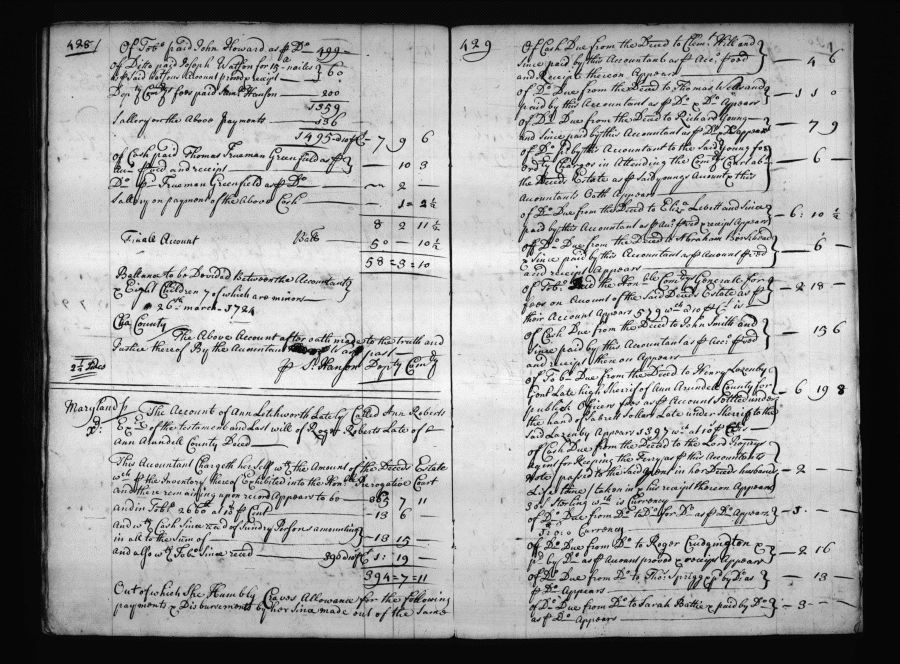 428
Of Tobo paid John Howard as p Do 499
Of Ditto paid Joseph Watson for 15 nailes
p said Watsons Account proved & receipt 60
Dopty Comrys fees paid Saml Hanson 200
1359
Sallery on the Above payments 136
1495 7 9 6
Of Cash paid Thomas Trueman Greenfield as p
Acct proved and receipt — 10 3
Do p Trueman Greenfield as p Do — 2 —
Sallery on payment of the Above Cash — 1 = 2½
8 2 11½
Finale Account Ball 50 — 10½
58 = 3 = 10
Ballance to be Devided Betwext the Accountant
& Eight Children 7 of which are minors
26th march 1724
Cha County
The Above Account after oath made to the truth and
Justice thereof By the Accountant past
p Sl Hanson Dopty Comry
Maryland ss
The Account of Ann Letchworth Late by Called Ann Roberts
Ex of the testament and Last will of Roger Roberts Late of
Ann Arundell County Deced
This Accountant Chargeth her Self wth the Amount of the Deceds Estate
p the Inventory thereof Exhibited into the Honble Prerogative Court
and there remaining upon record Appears to be 365 7 11
And in Tobo 260 at 10 p Cent — 13 6 —
And wth Cash Since reced of Sundry Persons amounting
in all to the Sum of — 13 15 —
and also wth Tobo Since reced 390 1 : 19 —
394 = 7 = 11
Out of which She Humbly Craves Allowance for the following
payments & Disbursements by her Since made out of the Same
429
Of Cash Due from the Deced to Clemt Hill and
since paid by this Accountant as p Acct proved
and Receipt thereon Appears — 4 6
Of Do Due from the Deced to Thomas Wells and
paid by this Accountant as p Do & Do Appears — 1 1 0
Of Do Due from the Deced to Richard Young
and Since paid by this Accountant as p Do & Do appears — 7 9
Of Do pd by this Accountant to the Said Young for
Charges in Attending the Comrys Court ab
the Deceds Estate as p said youngs Account & this
Accountants Oath Appears — 6 —
Of Do Due from the Deced to Eliza Lebett and Since
paid by this Accountant as p Acct proved & receipt Appears — 6 : 10½
Of Do Due from the Deced to Abraham
& Since paid by this Accountant as p Account proved
and receipt Appears — 6 —
Of Tobo paid the Honble Comry Generale for
fees on Account of the Said Deceds Estate as p
their Account Appears 579 wch at 10 p Ct is — 2 18 —
Of Cash Due from the Deced to John Smith and
Since paid by this Accountant as p Acct proved
and receipt then on Appears — 13 6
Of Tobo Due from the Deced to Henry Lazenby
Gent Late high Sherrif of Ann Arundell County for
publick Officers fees as p Account Settled under
the hand of Late under Sherrif to the
Said Lazenby Appears 1397 wch at 10 p Ct is — 6 19 8
Of Cash Due from the Deced to the Lord Propry
Agent for Keeping the Ferry as p this Accountants
Note passed to the Said Agent in her Deced husbands
Life time taken in & his receipt thereon Appears
30s Sterling wch is Currency — 2 —
Of Do Due from Do to Do for Do as p Do Appears
Currency — 3 —
Of Do Due from Do to Roger Crudgington &
pd by Do as p Account proved & receipt Appears — 2 16
Of Do Due from Do to Thos Sprigg & pd by Do as
p Do Appears — 13 —
Of Do Due from Do to Sarah Battee & paid by Do
as p Do Appears — 3 —